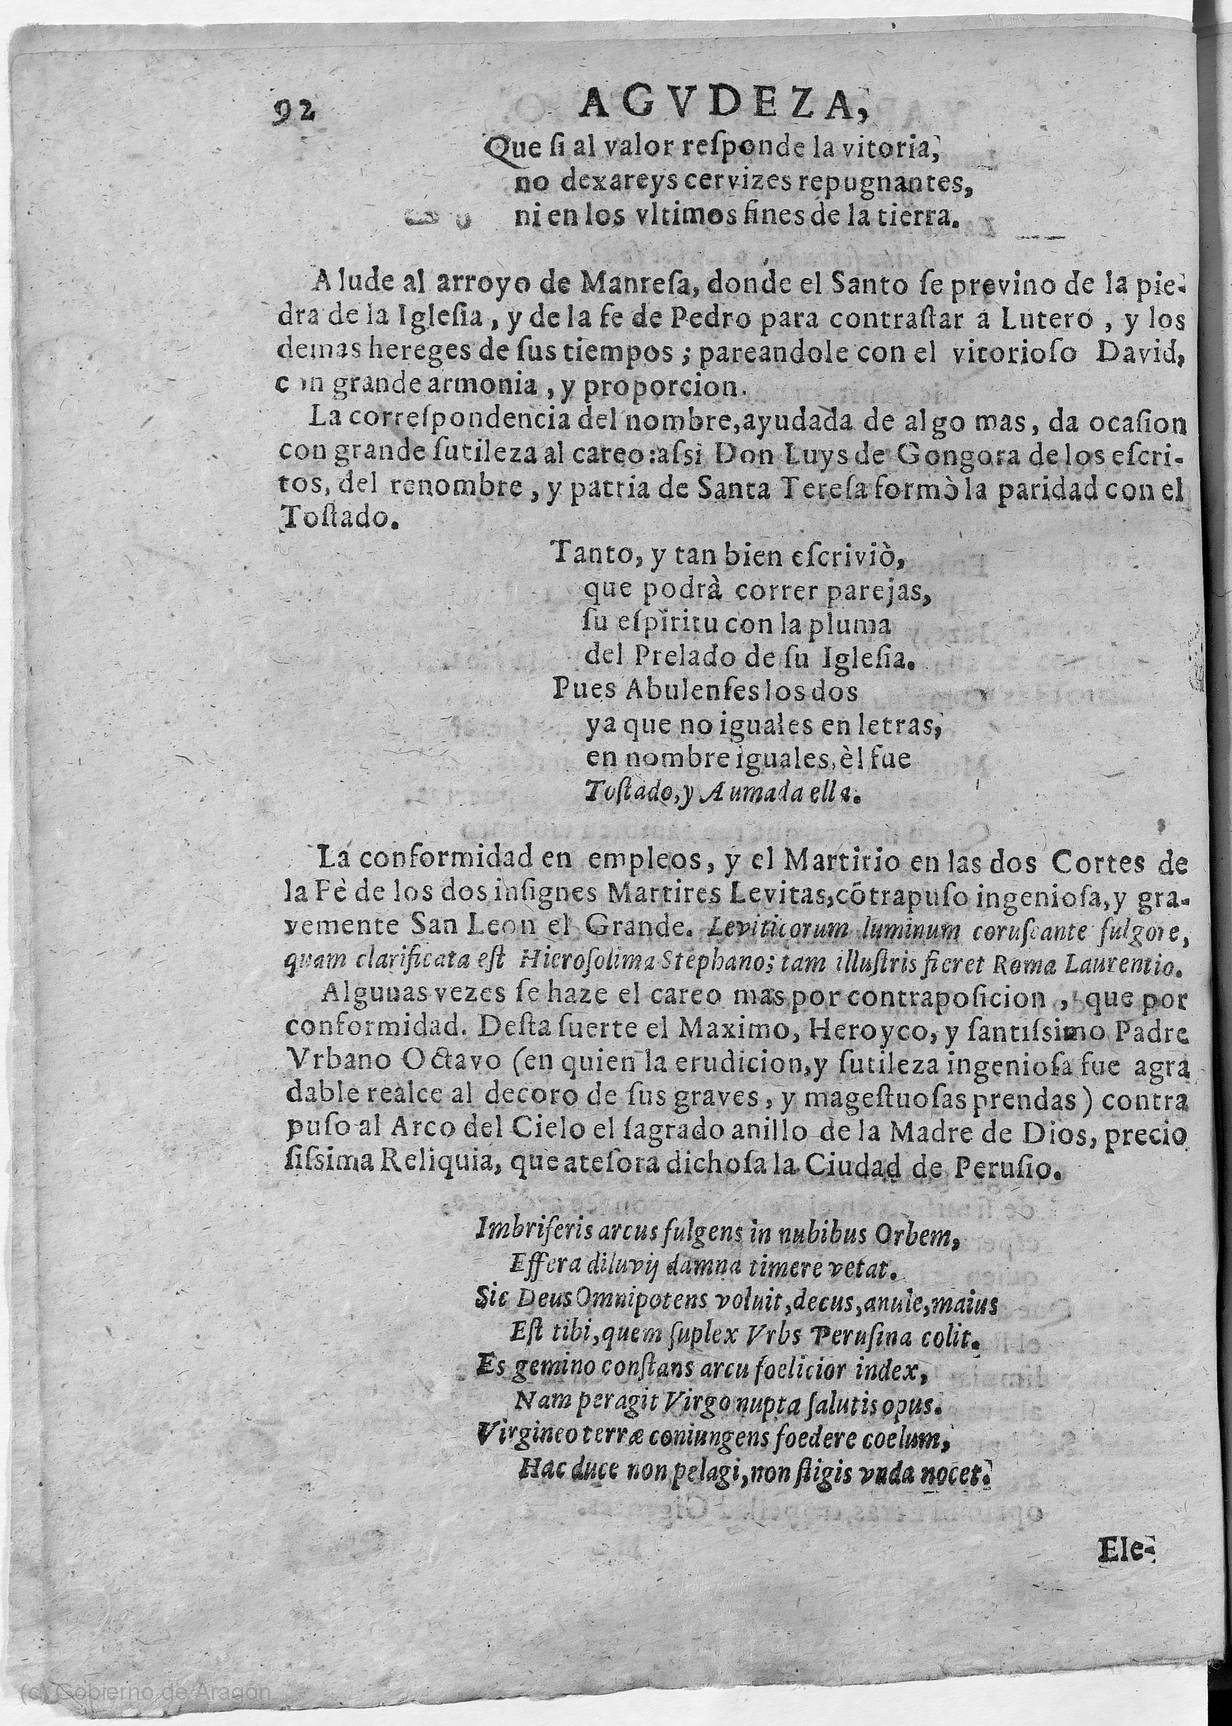 92
AGVDEZA,
Que ſi al valor reſponde la vitoria,
no dexareys cervizes repugnantes,
ni en los vltimos fines de la tierra.
Alude al arroyo de Manreſa, donde el Santo ſe previno de la pie-
dra de la Igleſia, y de la fe de Pedro para contraſtar à Lutero, y los
demas hereges de ſus tiempos; pareandole con el vitorioſo David,
con grande armonia, y proporcion.
La correſpondencia del nombre, ayudada de algo mas, da ocaſion
con grande ſutileza al careo: aſsi Don Luys de Gongora de los eſcri-
tos, del renombre, y patria de Santa Tereſa formò la paridad con el
Toſtado.
Tanto, y tan bien eſcriviò,
que podrà correr parejas,
ſu eſpiritu con la pluma
del Prelado de ſu Igleſia.
Pues Abulenſes los dos
ya que no iguales en letras,
en nombre iguales, èl fue
Toſtado, y Aumada ella.
La conformidad en empleos, y el Martirio en las dos Cortes de
la Fè de los dos inſignes Martires Levitas, cõtrapuſo ingenioſa, y gra-
vemente San Leon el Grande. Leviticorum luminum coruſcante fulgore,
quam clarificata eſt Hieroſolima Stephano; tam illuſtris fieret Roma Laurentio.
Algunas vezes ſe haze el careo mas por contrapoſicion, que por
conformidad. Deſta ſuerte el Maximo, Heroyco, y ſantiſsimo Padre
Vrbano Octavo (en quien la erudicion, y ſutileza ingenioſa fue agra
dable realce al decoro de ſus graves, y mageſtuoſas prendas) contra
puſo al Arco del Cielo el ſagrado anillo de la Madre de Dios, precio
ſiſsima Reliquia, que ateſora dichoſa la Ciudad de Peruſio.
Imbriferis arcus fulgens in nubibus Orbem,
Effera diluvij damna timere vetat.
Sic Deus Omnipotens voluit, decus, anule, maius
Eſt tibi, quem ſuplex Vrbs Peruſina colit.
Es gemino conſtans arcu foelicior index,
Nam peragit Virgo nupta ſalutis opus.
Virgineo terræ coniungens foedere coelum,
Hac duce non pelagi, non ſtigis vnda nocet.
Ele-
(c) Gobierno de Aragón